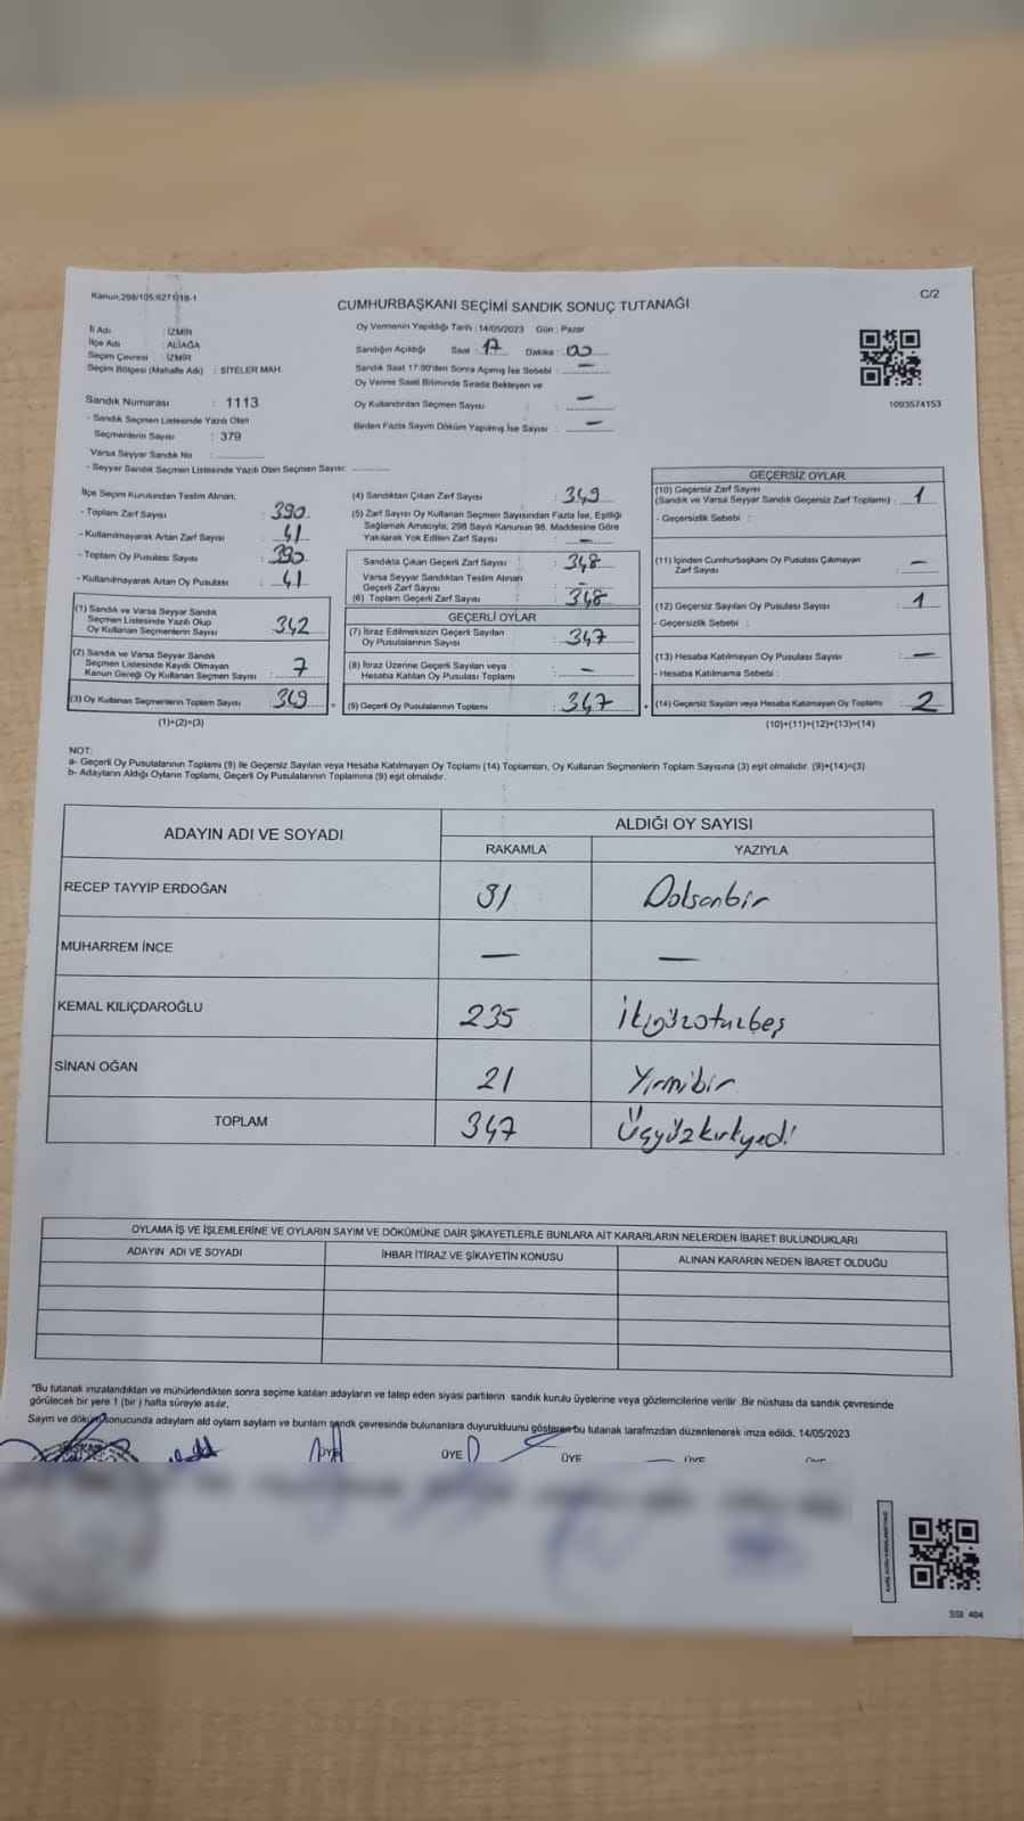 Kanun:298/105;6271/18-1
C/2
CUMHURBAŞKANI SEÇİMİ SANDIK SONUÇ TUTANAĞI
İl Adı : İZMİR
İlçe Adı : ALİAĞA
Seçim Çevresi : İZMİR
Seçim Bölgesi (Mahalle Adı) : SİTELER MAH.
Sandık Numarası : 1113
- Sandık Seçmen Listesinde Yazılı Olan
Seçmenlerin Sayısı : 379
Varsa Seyyar Sandık No
- Seyyar Sandık Seçmen Listesinde Yazılı Olan Seçmen Sayısı:
Oy Vermenin Yapıldığı Tarih : 14/05/2023 Gün : Pazar
Sandığın Açıldığı Saat : 17 Dakika : 00
Sandık Saat 17:00'den Sonra Açılmış İse Sebebi : —
Oy Verme Saati Bitiminde Sırada Bekleyen ve
Oy Kullandırılan Seçmen Sayısı : —
Birden Fazla Sayım Döküm Yapılmış İse Sayısı : —
1093574153
İlçe Seçim Kurulundan Teslim Alınan;
- Toplam Zarf Sayısı : 390
- Kullanılmayarak Artan Zarf Sayısı : 41
- Toplam Oy Pusulası Sayısı : 390
- Kullanılmayarak Artan Oy Pusulası : 41
(1) Sandık ve Varsa Seyyar Sandık
Seçmen Listesinde Yazılı Olup
Oy Kullanan Seçmenlerin Sayısı : 342
(2) Sandık ve Varsa Seyyar Sandık
Seçmen Listesinde Kayıtlı Olmayan
Kanun Gereği Oy Kullanan Seçmen Sayısı : 7
(3) Oy Kullanan Seçmenlerin Toplam Sayısı : 349
(1)+(2)=(3)
(4) Sandıktan Çıkan Zarf Sayısı : 349
(5) Zarf Sayısı Oy Kullanan Seçmen Sayısından Fazla İse, Eşitliği
Sağlamak Amacıyla, 298 Sayılı Kanunun 98. Maddesine Göre
Yakılarak Yok Edilen Zarf Sayısı : —
Sandıkta Çıkan Geçerli Zarf Sayısı : 348
Varsa Seyyar Sandıktan Teslim Alınan
Geçerli Zarf Sayısı : —
(6) Toplam Geçerli Zarf Sayısı : 348
GEÇERLİ OYLAR
(7) İtiraz Edilmeksizin Geçerli Sayılan
Oy Pusulalarının Sayısı : 347
(8) İtiraz Üzerine Geçerli Sayılan veya
Hesaba Katılan Oy Pusulası Toplamı : —
(9) Geçerli Oy Pusulalarının Toplamı : 347
GEÇERSİZ OYLAR
(10) Geçersiz Zarf Sayısı
(Sandık ve Varsa Seyyar Sandık Geçersiz Zarf Toplamı) : 1
- Geçersizlik Sebebi :
(11) İçinden Cumhurbaşkanı Oy Pusulası Çıkmayan
Zarf Sayısı : —
(12) Geçersiz Sayılan Oy Pusulası Sayısı : 1
- Geçersizlik Sebebi :
(13) Hesaba Katılmayan Oy Pusulası Sayısı : —
- Hesaba Katılmama Sebebi :
(14) Geçersiz Sayılan veya Hesaba Katılmayan Oy Toplamı : 2
(10)+(11)+(12)+(13)=(14)
NOT:
a- Geçerli Oy Pusulalarının Toplamı (9) ile Geçersiz Sayılan veya Hesaba Katılmayan Oy Toplamı (14) Toplamları, Oy Kullanan Seçmenlerin Toplam Sayısına (3) eşit olmalıdır. (9)+(14)=(3)
b- Adayların Aldığı Oyların Toplamı, Geçerli Oy Pusulalarının Toplamına (9) eşit olmalıdır.
ADAYIN ADI VE SOYADI
ALDIĞI OY SAYISI
RAKAMLA YAZIYLA
RECEP TAYYİP ERDOĞAN 91 Dolsanbir
MUHARREM İNCE — —
KEMAL KILIÇDAROĞLU 235 İkiyüzotuzbeş
SİNAN OĞAN 21 Yirmibir
TOPLAM 347 Üçyüzkırkyedi
OYLAMA İŞ VE İŞLEMLERİNE VE OYLARIN SAYIM VE DÖKÜMÜNE DAİR ŞİKAYETLERLE BUNLARA AİT KARARLARIN NELERDEN İBARET BULUNDUKLARI
ADAYIN ADI VE SOYADI İHBAR İTİRAZ VE ŞİKAYETİN KONUSU ALINAN KARARIN NEDEN İBARET OLDUĞU
"Bu tutanak imzalandıktan ve mühürlendikten sonra seçime katılan adayların ve talep eden siyasi partilerin sandık kurulu üyelerine veya gözlemcilerine verilir. Bir nüshası da sandık çevresinde
görülecek bir yere 1 (bir) hafta süreyle asılır.
Sayım ve döküm sonucunda adayların aldı oyların sayıları ve bunları sandk çevresinde bulunanlara duyurulduunu gösteren bu tutanak tarafmzdan düzenlenerek imza edildi. 14/05/2023
ÜYE ÜYE ÜYE
SSI 404